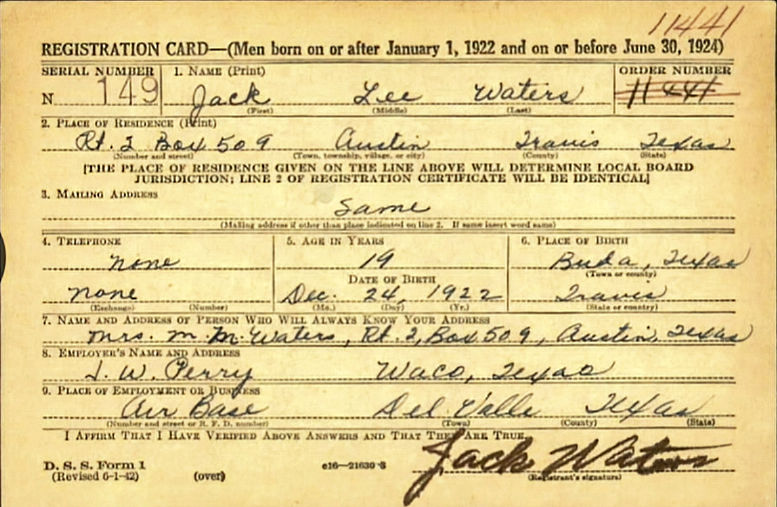 11441
REGISTRATION CARD—(Men born on or after January 1, 1922 and on or before June 30, 1924)
SERIAL NUMBER 1. NAME (Print) ORDER NUMBER
N 149 Jack Lee Waters 11441
(First) (Middle) (Last)
2. PLACE OF RESIDENCE (Print)
Rt. 2 Box 509 Austin Travis Texas
(Number and street) (Town, township, village, or city) (County) (State)
[THE PLACE OF RESIDENCE GIVEN ON THE LINE ABOVE WILL DETERMINE LOCAL BOARD
JURISDICTION; LINE 2 OF REGISTRATION CERTIFICATE WILL BE IDENTICAL]
3. MAILING ADDRESS
Same
(Mailing address if other than place indicated on line 2. If same insert word same)
4. TELEPHONE 5. AGE IN YEARS 6. PLACE OF BIRTH
None 19 Buda, Texas
DATE OF BIRTH (Town or county)
None Dec. 24, 1922 Travis
(Exchange) (Number) (Mo.) (Day) (Yr.) (State or country)
7. NAME AND ADDRESS OF PERSON WHO WILL ALWAYS KNOW YOUR ADDRESS
Mrs. M. M. Waters, Rt. 2, Box 509, Austin, Texas
8. EMPLOYER'S NAME AND ADDRESS
J. W. Perry Waco, Texas
9. PLACE OF EMPLOYMENT OR BUSINESS
Air Base Del Valle Texas
(Number and street or R. F. D. number) (Town) (County) (State)
I AFFIRM THAT I HAVE VERIFIED ABOVE ANSWERS AND THAT THEY ARE TRUE.
D. S. S. Form 1
(Revised 6-1-42) (over) c16—21630-2 Jack Waters
(Registrant's signature)